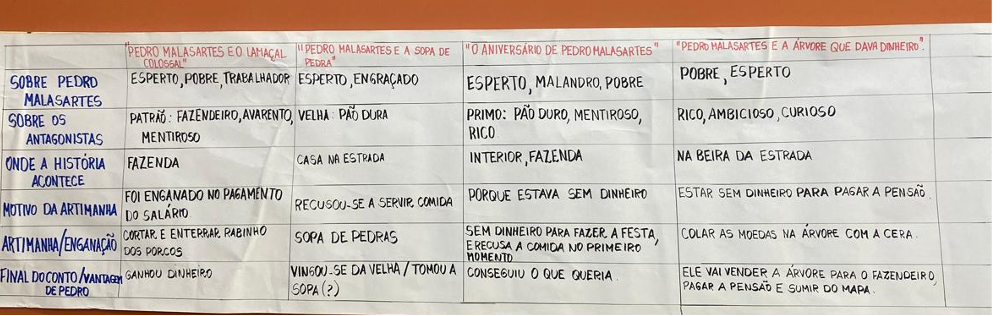 "PEDRO MALASARTES E O LAMAÇAL
COLOSSAL"
"PEDRO MALASARTES E A SOPA DE
PEDRA"
"O ANIVERSÁRIO DE PEDRO MALASARTES"
"PEDRO MALASARTES E A ÁRVORE QUE DAVA DINHEIRO".
SOBRE PEDRO
MALASARTES
ESPERTO, POBRE, TRABALHADOR
ESPERTO, ENGRAÇADO
ESPERTO, MALANDRO, POBRE
POBRE, ESPERTO
SOBRE OS
ANTAGONISTAS
PATRÃO: FAZENDEIRO, AVARENTO,
MENTIROSO
VELHA: PÃO DURA
PRIMO: PÃO DURO, MENTIROSO,
RICO
RICO, AMBICIOSO, CURIOSO
ONDE A HISTÓRIA
ACONTECE
FAZENDA
CASA NA ESTRADA
INTERIOR, FAZENDA
NA BEIRA DA ESTRADA
MOTIVO DA ARTIMANHA
FOI ENGANADO NO PAGAMENTO
DO SALÁRIO
RECUSOU-SE A SERVIR COMIDA
PORQUE ESTAVA SEM DINHEIRO
ESTAR SEM DINHEIRO PARA PAGAR A PENSÃO
ARTIMANHA/ENGANAÇÃO
CORTAR E ENTERRAR RABINHO
DOS PORCOS
SOPA DE PEDRAS
SEM DINHEIRO PARA FAZER A FESTA,
E RECUSA A COMIDA NO PRIMEIRO
MOMENTO
COLAR AS MOEDAS NA ÁRVORE COM A CERA.
FINAL DO CONTO/VANTAGEM
DE PEDRO
GANHOU DINHEIRO
VINGOU-SE DA VELHA / TOMOU A
SOPA (?)
CONSEGUIU O QUE QUERIA.
ELE VAI VENDER A ÁRVORE PARA O FAZENDEIRO,
PAGAR A PENSÃO E SUMIR DO MAPA.